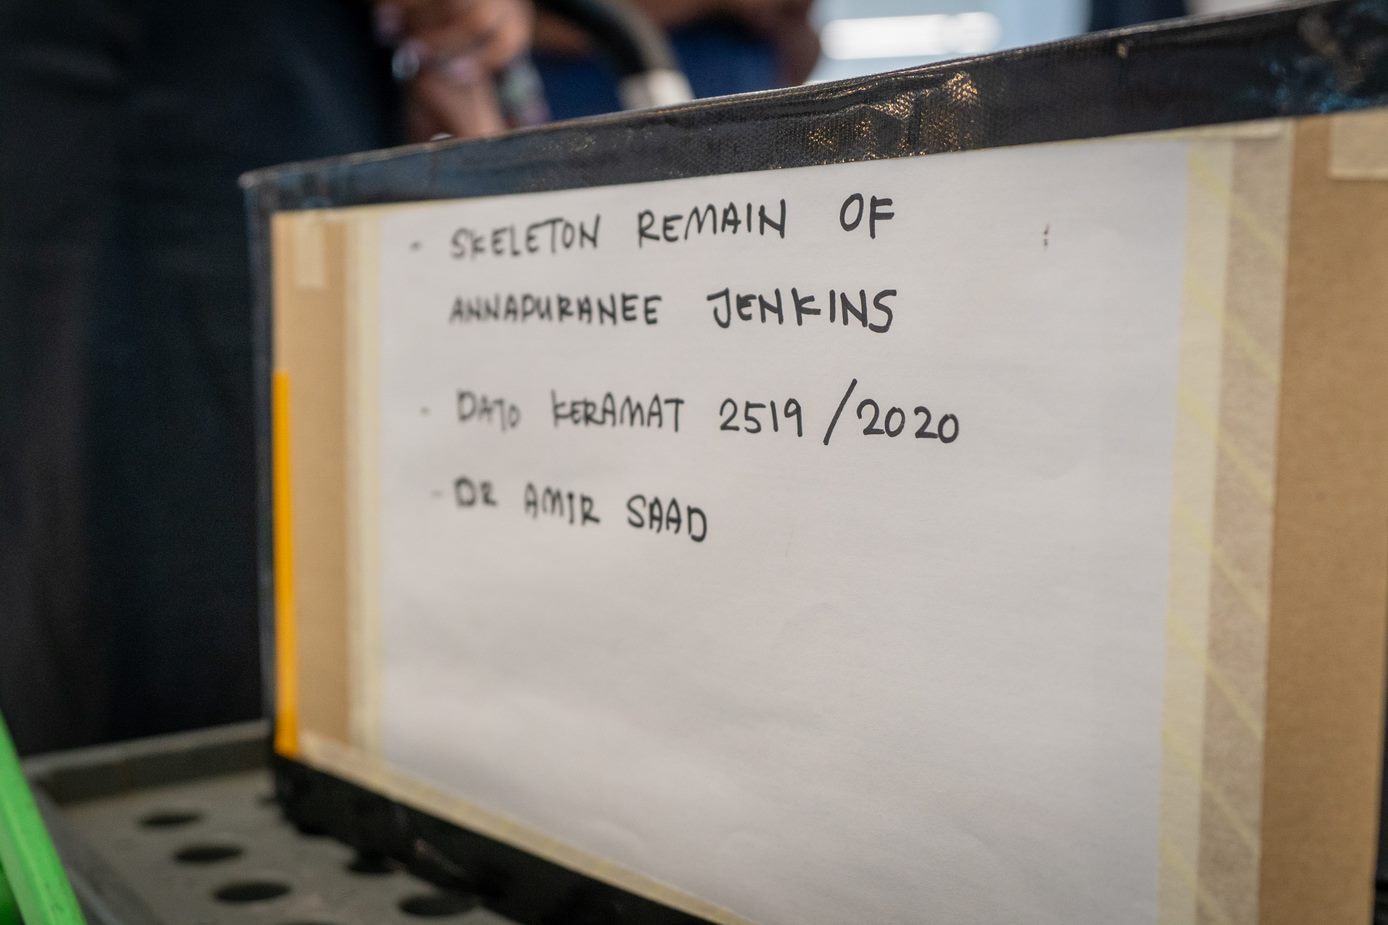 - SKELETON REMAIN OF
ANNAPURANEE JENKINS
- DATO KERAMAT 2519/2020
- DR AMIR SAAD